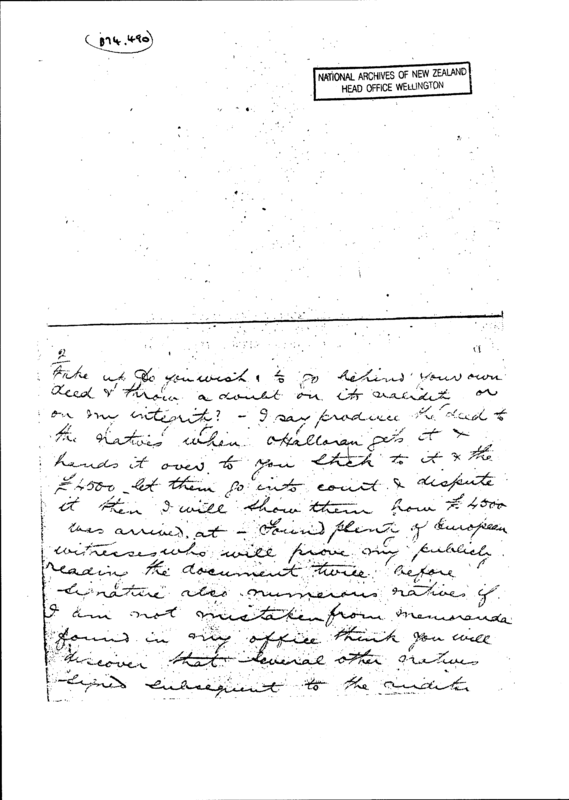 B74.490
NATIONAL ARCHIVES OF NEW ZEALAND
HEAD OFFICE WELLINGTON
2
take up Do you wish to go behind your own
deed & throw a doubt on its validity or
on my integrity? - I say produce the deed to
the natives when OHalloran gets it &
hands it over to you Stick to it & the
£4500 let them go into court & dispute
it then I will show them how £4500
was arrived at - Found plenty of European
witnesses who will prove my publicly
reading the document twice before
signature also numerous natives if
I am not mistaken from memoranda
found in my office think you will
discover that several other natives
signed subsequent to the